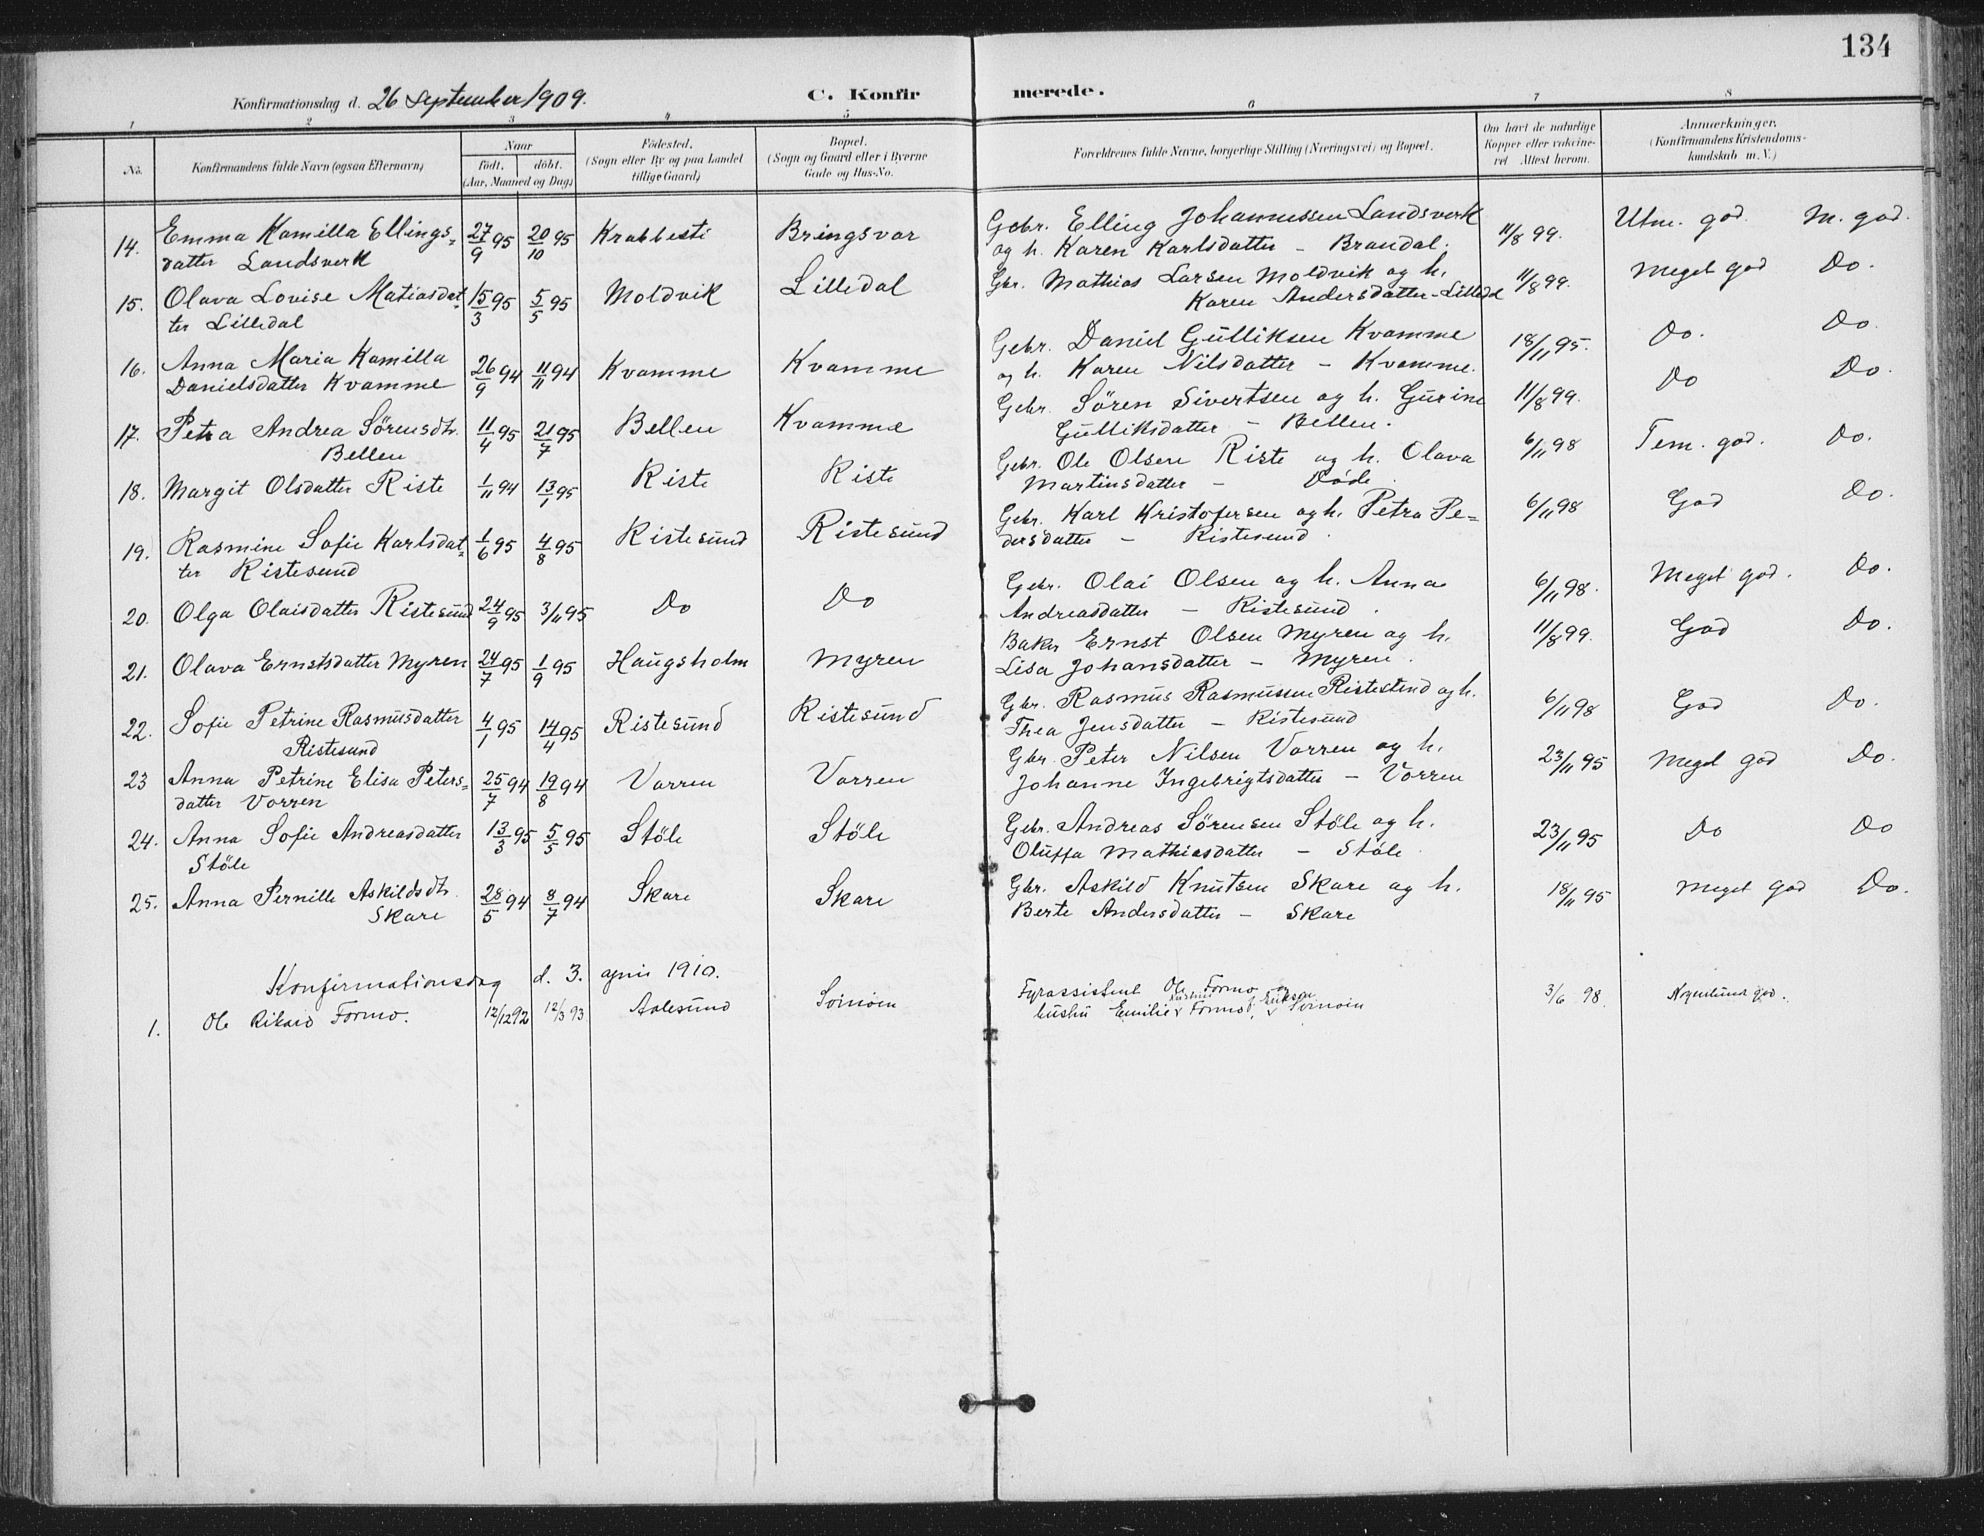 134
Konfirmationsdag d. 26 September 1909. C. Konfirmerede.
1 2 3 4 5 6 7 8
No. Konfirmandens fulde Navn (ogsaa Efternavn) Naar født. døbt. (Aar, Maaned og Dag) Fødested. (Sogn eller By og paa Landet tillige Gaard) Bopæl. (Sogn og Gaard eller i Byerne Gade og Hus-No. Forældrenes fulde Navne, borgerlige Stilling (Næringsvei) og Bopæl. Om havt de naturlige Kopper eller vakcineret Attest herom. Anmærkninger. (Konfirmandens Kristendomskundskab m. V.)
14. Emma Kamilla Ellings= 27/9 95 20/10 95 Krabbesti Bringsvor Gebr. Elling Johannessen Landsverk 11/8 99. Utm. god. M. god.
datter Landsverk og h. Karen Karlsdatter – Brandal.
15. Olava Lovise Matiasdat= 15/3 95 5/5 95 Moldvik Lilledal Gbr. Mathias Larsen Moldvik og h. 11/8 99. Meget god Do.
ter Lilledal Karen Andersdatter – Lilledal
16. Anna Maria Kamilla 26/9 94 11/11 94 Kvamme Kvamme Gebr. Daniel Gulliksen Kvamme 18/11 95. Do. Do.
Danielsdatter Kvamme og h. Karen Nilsdatter – Kvamme.
17. Petra Andrea Sörensdtr. 11/4 95 21/7 95 Bellen Kvamme Gebr. Sören Sivertsen og h. Gurine 11/8 99. Do Do.
Bellen Gulliksdatter – Bellen.
18. Margit Olsdatter Riste 1/11 94 13/1 95 Riste Riste Gebr. Ole Olsen Riste og h. Olava 6/11 98 Tem. god. Do.
Martinsdatter – Døde.
19. Rasmine Sofie Karlsdat= 1/6 95 4/8 95 Ristesund Ristesund Gebr. Karl Kristofersen og h. Petra Pe= 6/11 98 God Do.
ter Ristesund dersdatter – Ristesund.
20. Olga Olaisdatter Ristesund 24/9 95 3/11 95 Do Do Gebr. Olai Olsen og h. Anna 6/11 98. Meget god. Do.
Andreasdatter – Ristesund.
21. Olava Ernstsdatter Myren 24/7 95 1/9 95 Haugsholm Myren Baker Ernst Olsen Myren og h. 11/8 99. God Do.
Lisa Johansdatter – Myren.
22. Sofie Petrine Rasmusdatter 4/1 95 14/4 95 Ristesund Ristesund Gbr. Rasmus Rasmussen Ristesund og h. 6/11 98 God Do.
Ristesund Thea Jensdatter – Ristesund
23 Anna Petrine Elisa Peters= 25/7 94 19/8 94 Vorren Vorren Gbr. Peter Nilsen Vorren og h. 23/11 95 Meget god Do.
datter Vorren Johanne Ingebrigtsdatter – Vorren
24. Anna Sofie Andreasdatter 13/3 95 5/5 95 Stöle Stöle Gebr. Andreas Sörensen Stöle og h. 23/11 95 Do Do
Stöle Oluffa Mathiasdatter – Stöle
25. Anna Pernille Askildsdtr. 28/5 94 8/7 94 Skare Skare Gbr. Askild Knutsen Skare og h. 18/11 95 Meget god Do.
Skare Berte Andersdatter – Skare
Konfirmationsdag d. 3. april 1910.
1. Ole Rikard Formo. 12/12 92 12/3 93 Aalesund Fyrassistent Ole Formo og 3/6 98.
hustru Emilie Formo f. Eriksen